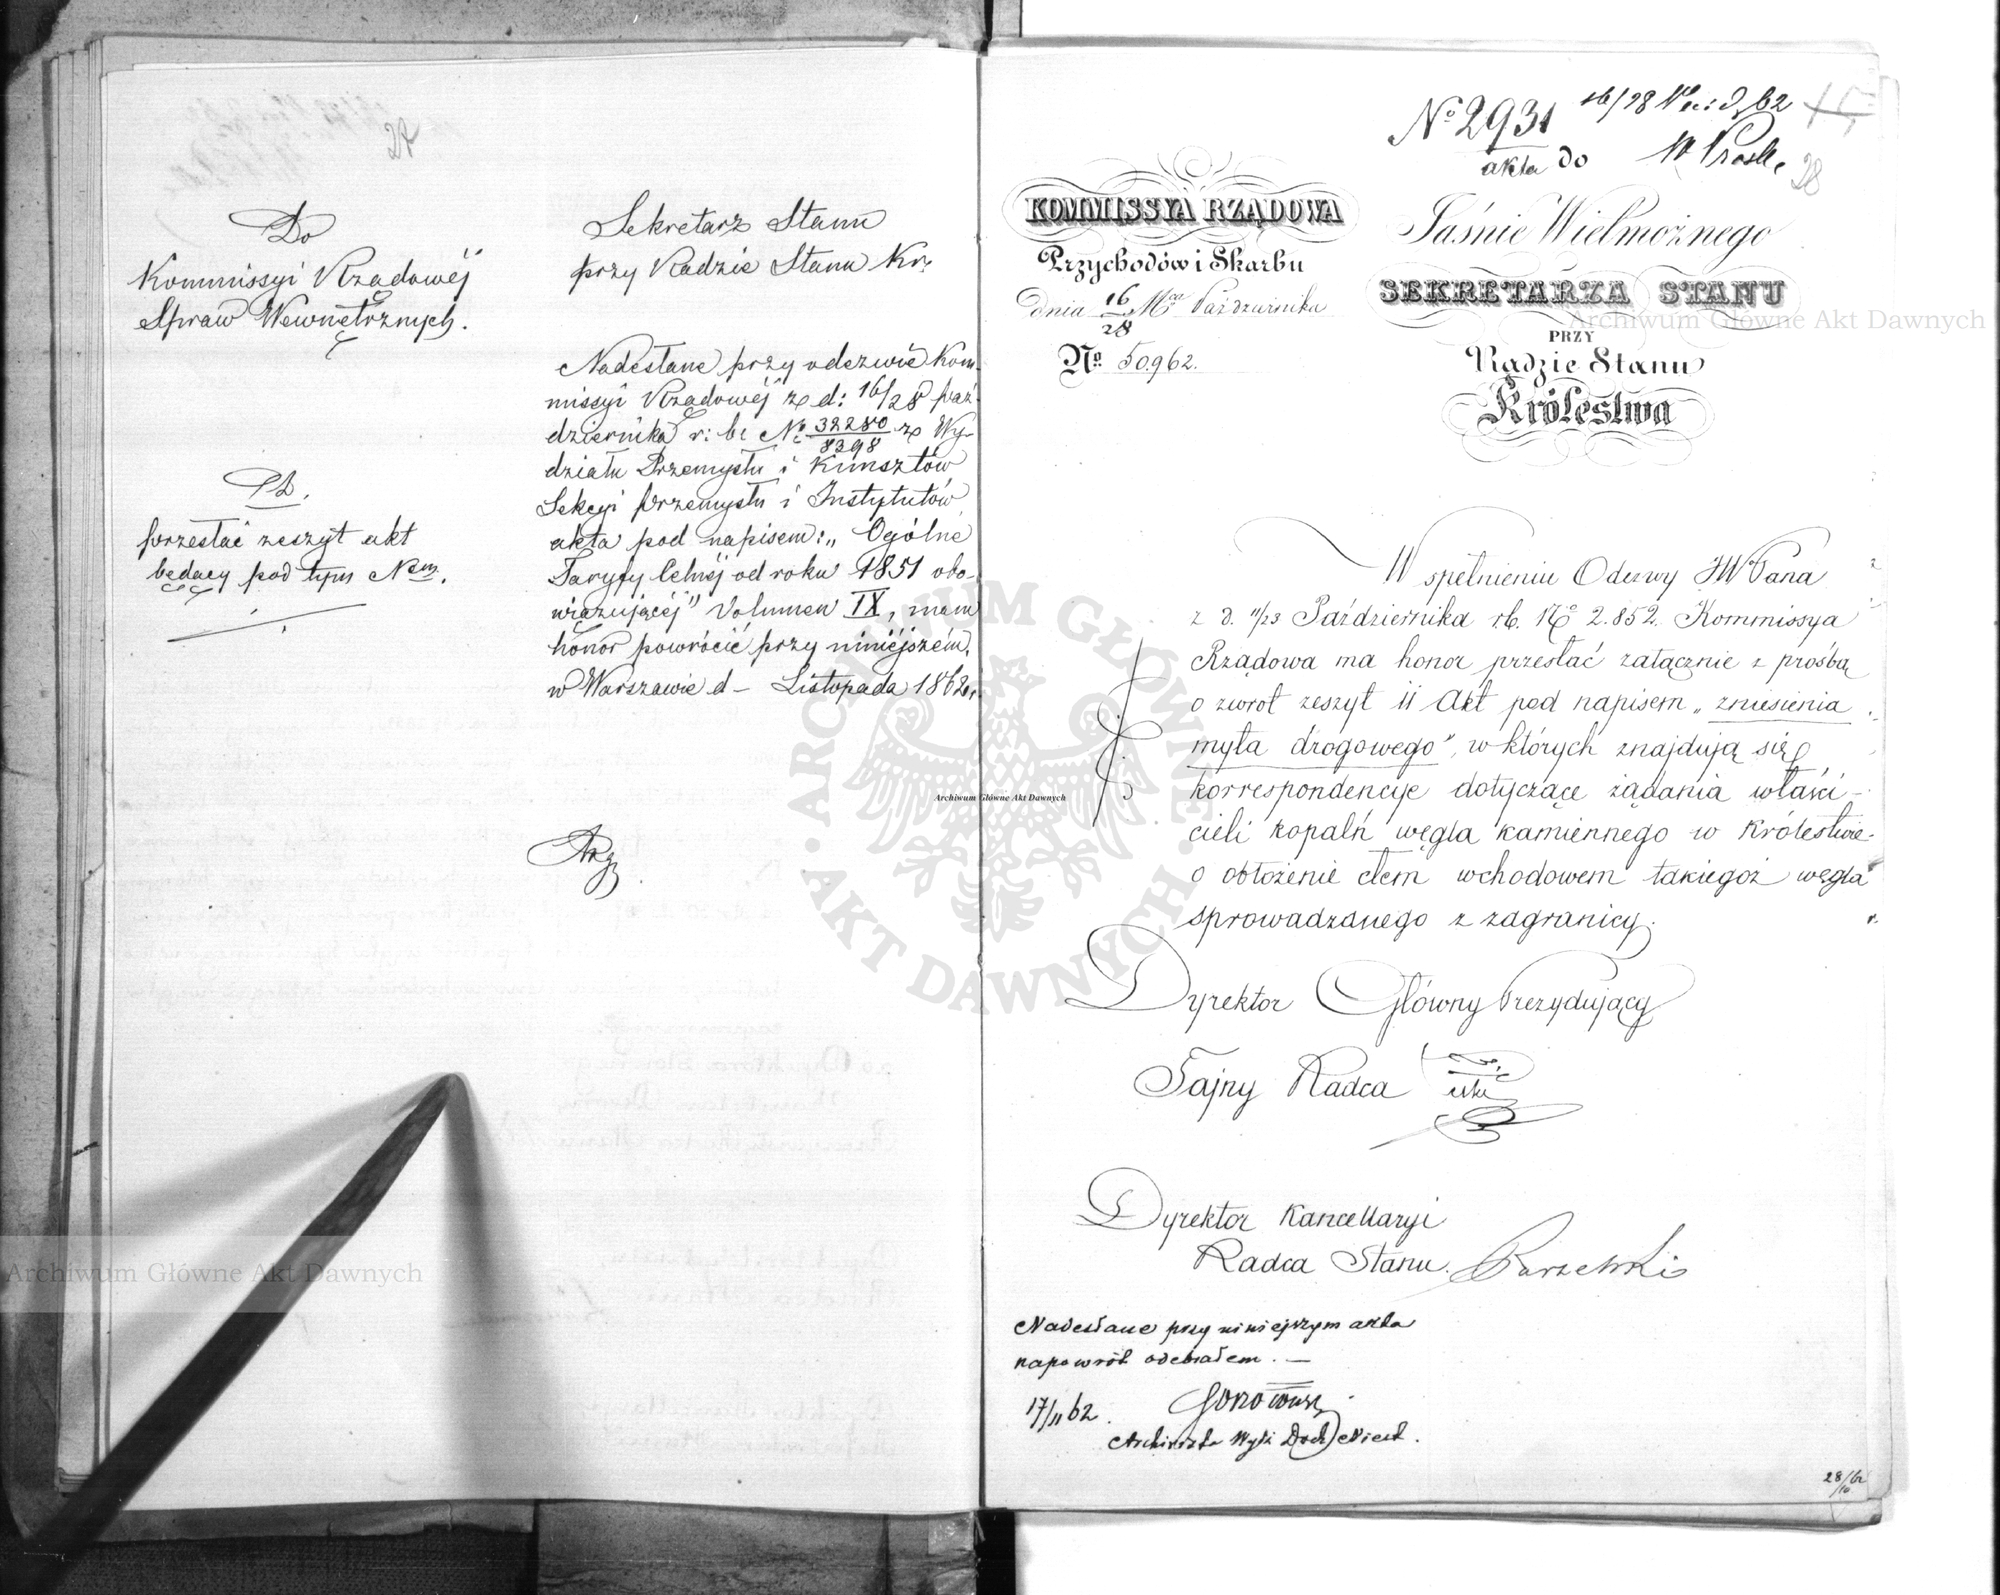 27
Do
Kommissyi Rządowéj
Spraw Wewnętrznych.
przesłać zeszyt akt
będący pod tym Nem.
Sekretarz Stanu
przy Radzie Stanu Kr.
Nadesłane przy odezwie Kom-
missyi Rządowéj z d: 16/28 paź-
dziernika r: b: No 32280/8398 z Wy-
działu Przemysłu i Kunsztów
Sekcyi przemysłu i Instytutów
akta pod napisem: „Ogólné
Taryfy celnéj od roku 1851 obo-
wiązującéj" Volumen IX, mam
honor powrócić przy niniéjszém.
w Warszawie d – Listopada 1862 r.
No 2931 16/28 62
akta do
28
KOMMISSYA RZĄDOWA
Przychodów i Skarbu
dnia 16/28 Mca Października
No. 50962.
Jaśnie Wielmożnego
SEKRETARZA STANU
PRZY
Radzie Stanu
Królestwa
W spełnieniu Odezwy JW Pana
z d. 11/23 Października rb. No 2.852. Kommissya
Rządowa ma honor przesłać załącznie z prośbą
o zwrot zeszyt II Akt pod napisem „zniesienia
myta drogowego", w których znajdują się
korrespondencye dotyczące żądania właści-
cieli kopalń węgla kamiennego w Królestwie
o obłożenie cłem wchodowem takiegoż węgla
sprowadzanego z zagranicy.
Dyrektor Główny Prezydujący
Tajny Radca
Dyrektor Kancellaryi
Radca Stanu.
Nadesłane przy niniejszym akta
napowrót odebrałem. —
17/11 62.
Archiwista
28/10 62
Archiwum Główne Akt Dawnych
Archiwum Główne Akt Dawnych
Archiwum Główne Akt Dawnych
ARCHIWUM GŁÓWNE AKT DAWNYCH